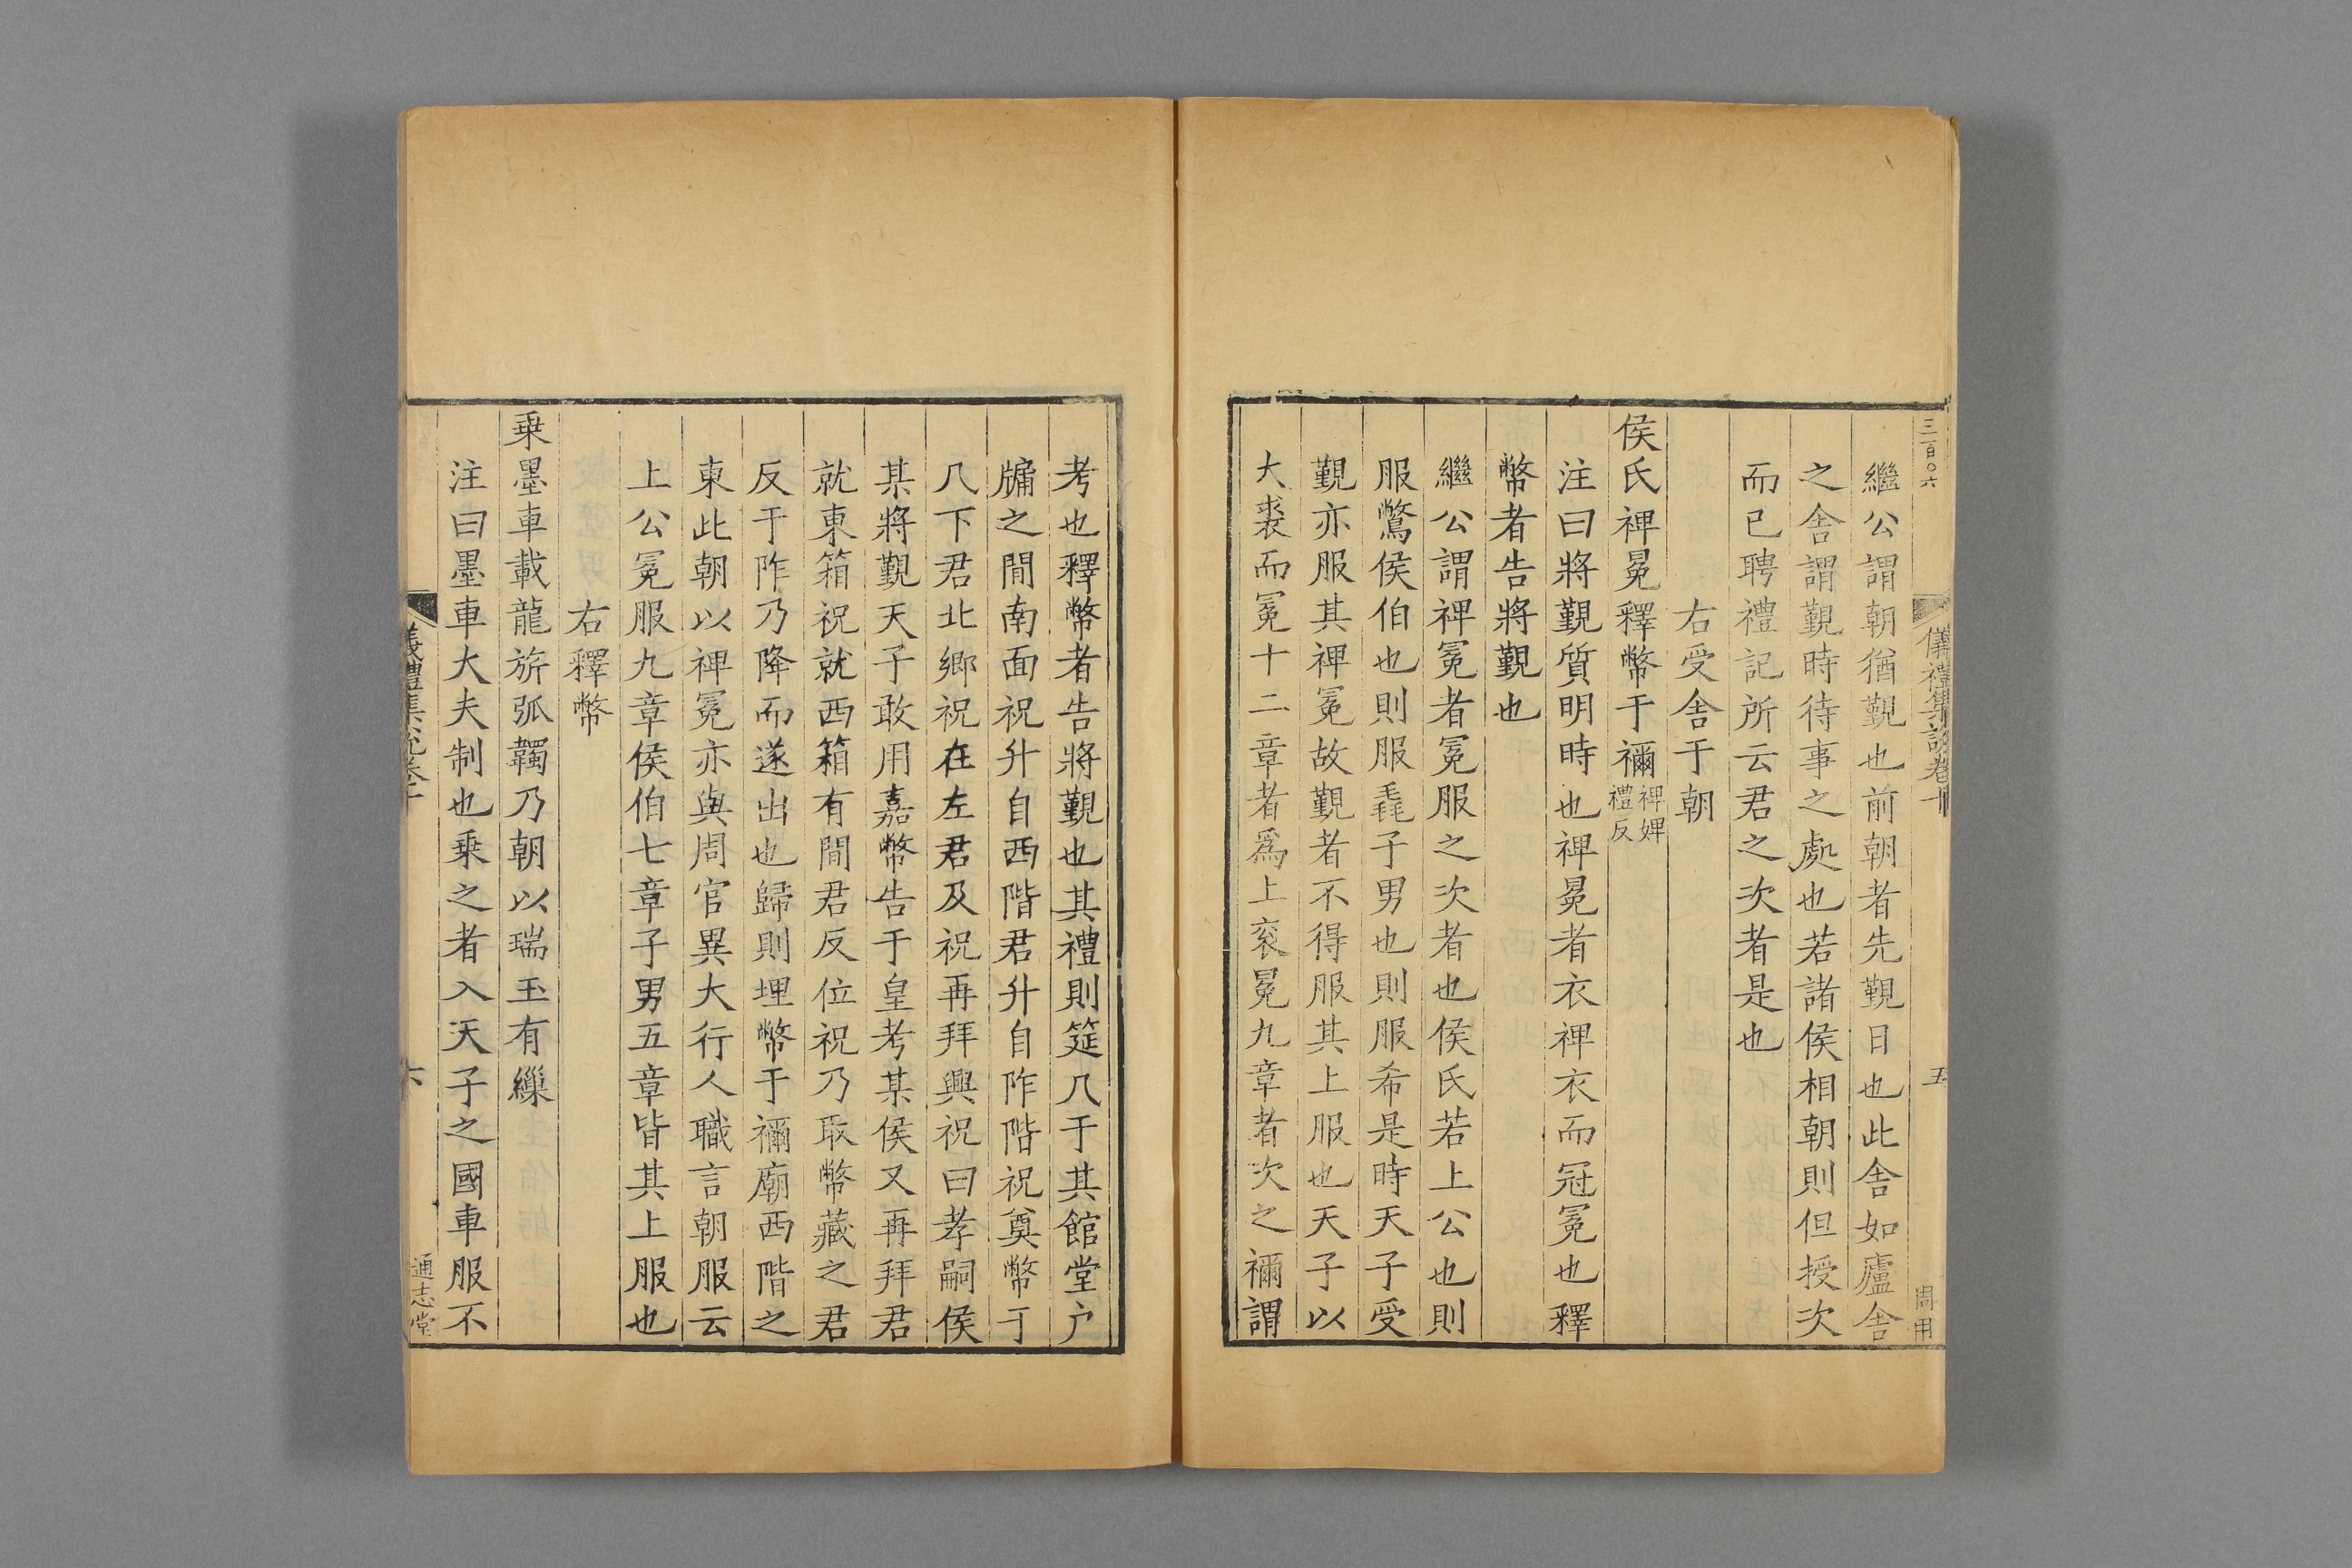 三百〇六
儀禮集說卷十
五
周用
繼公謂朝猶覲也前朝者先覲日也此舍如廬舍
之舍謂覲時待事之處也若諸侯相朝則但授次
而已聘禮記所云君之次者是也
右受舍于朝
侯氏裨冕釋幣于禰裨婢禮反
注曰將覲質明時也裨冕者衣裨衣而冠冕也釋
幣者告將覲也
繼公謂裨冕者冕服之次者也侯氏若上公也則
服鷩侯伯也則服毳子男也則服希是時天子受
覲亦服其裨冕故覲者不得服其上服也天子以
大裘而冕十二章者爲上衮冕九章者次之禰謂
考也釋幣者告將覲也其禮則筵几于其館堂户
牖之間南面祝升自西階君升自阼階祝奠幣于
几下君北鄉祝在左君及祝再拜興祝曰孝嗣侯
某將覲天子敢用嘉幣告于皇考某侯又再拜君
就東箱祝就西箱有間君反位祝乃取幣藏之君
反于阼乃降而遂出也歸則埋幣于禰廟西階之
東此朝以裨冕亦與周官異大行人職言朝服云
上公冕服九章侯伯七章子男五章皆其上服也
右釋幣
乗墨車載龍旂弧韣乃朝以瑞玉有繅
注曰墨車大夫制也乗之者入天子之國車服不
儀禮集說卷十
六
通志堂